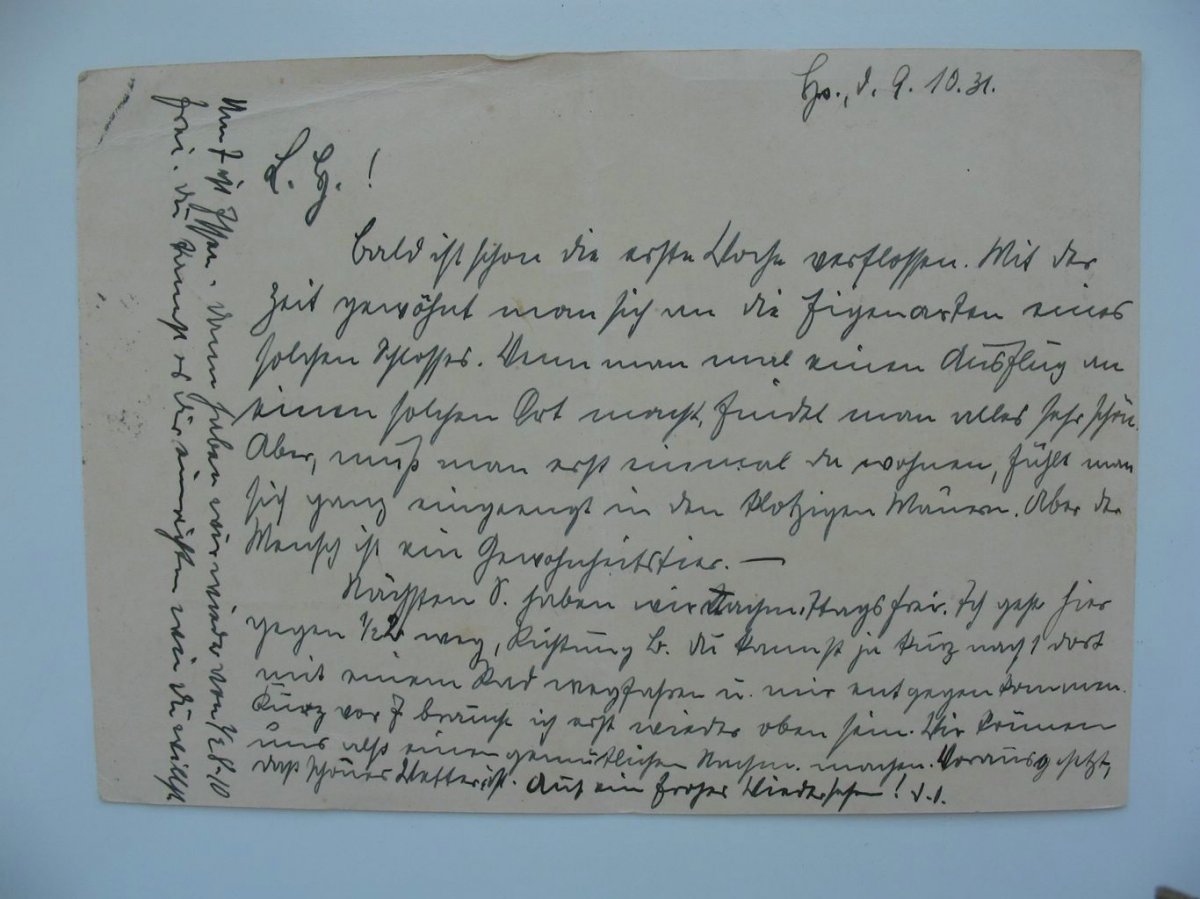 d. 9.10.31.
L. !
Bald ist schon die erste Woche verflossen. Mit der
Zeit gewöhnt man sich an die Eigenarten eines
solchen Schlosses. Wenn man mal einen Ausflug an
einen solchen Ort macht, findet man alles sehr schön.
Aber, muß man erst einmal da wohnen, fühlt man
sich ganz eingeengt in den klotzigen Mauern. Aber der
Mensch ist ein Gewohnheitstier. —
Nächsten S. haben wir Nachmittags frei. Ich gehe hier
gegen ½2 weg, Richtung B. Du kannst ja kurz nach 1 dort
mit einem Rad wegfahren u. mir entgegen kommen.
Kurz vor 7 brauche ich erst wieder oben sein. Wir können
uns also einen gemütlichen Nachm. machen. Vorausgesetzt,
daß schönes Wetter ist. Auf ein frohes Wiedersehen! D. J.
Um 7 ist Essen. Dann haben wir wieder von ½8-10
frei. Du kannst es dir einrichten wie du willst